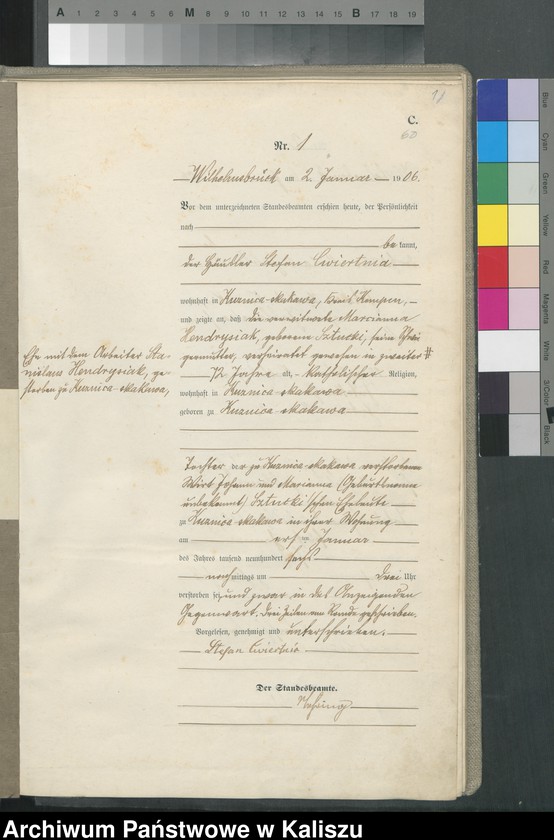 A 1 2 3 4 5 6 M 8 9 10 11 12 13 14 15 B 17 18 19
11
C.
60
Nr. 1
Wilhelmsbrück am 2. Januar 1906.
Vor dem unterzeichneten Standesbeamten erschien heute, der Persönlichkeit
nach
be kannt,
der Häusler Stefan Cwiertnia
wohnhaft in Kuznica-skakawa, Kreis Kempen,
und zeigte an, daß die verwitwete Marcianna
Hendrysiak, geborene Sztucki, seine Schwie
germutter, verheiratet gewesen in zweiter #
Ehe mit dem Arbeiter Sta-
nislaus Hendrysiak, ge-
storben zu Kuznica-skakawa,
72 Jahre alt, katholischer Religion,
wohnhaft in Kuznica skakawa
geboren zu Kuznica skakawa
Tochter der zu Kuznica skakawa verstorbenen
Wirt Johann und Marianna (Geburtsname
unbekannt) Sztucki'schen Eheleute
zu Kuznica skakawa in ihrer Wohnung
am ersten Januar
des Jahres tausend neunhundert sechs
nachmittags um drei Uhr
verstorben sei, und zwar in des Anzeigenden
Gegenwart. Drei Zeilen am Rande geschrieben.
Vorgelesen, genehmigt und unterschrieben.
Stefan Cwiertnia
Der Standesbeamte.
Blue
Cyan
Green
Yellow
Red
Magenta
White
3/Color
Black
Archiwum Państwowe w Kaliszu